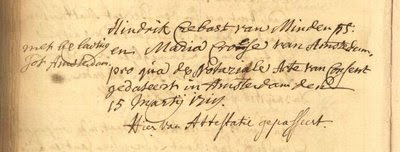 Hindrik Crebast van Minden JS.
met belasting
tot Amsterdam.
en Maria Crotje van Amsterdam,
pro qua de Notariale Acte van Consent
gedateert in Amsterdam den
15 Martij 1719.
Hier van Attestatie gepasseert.